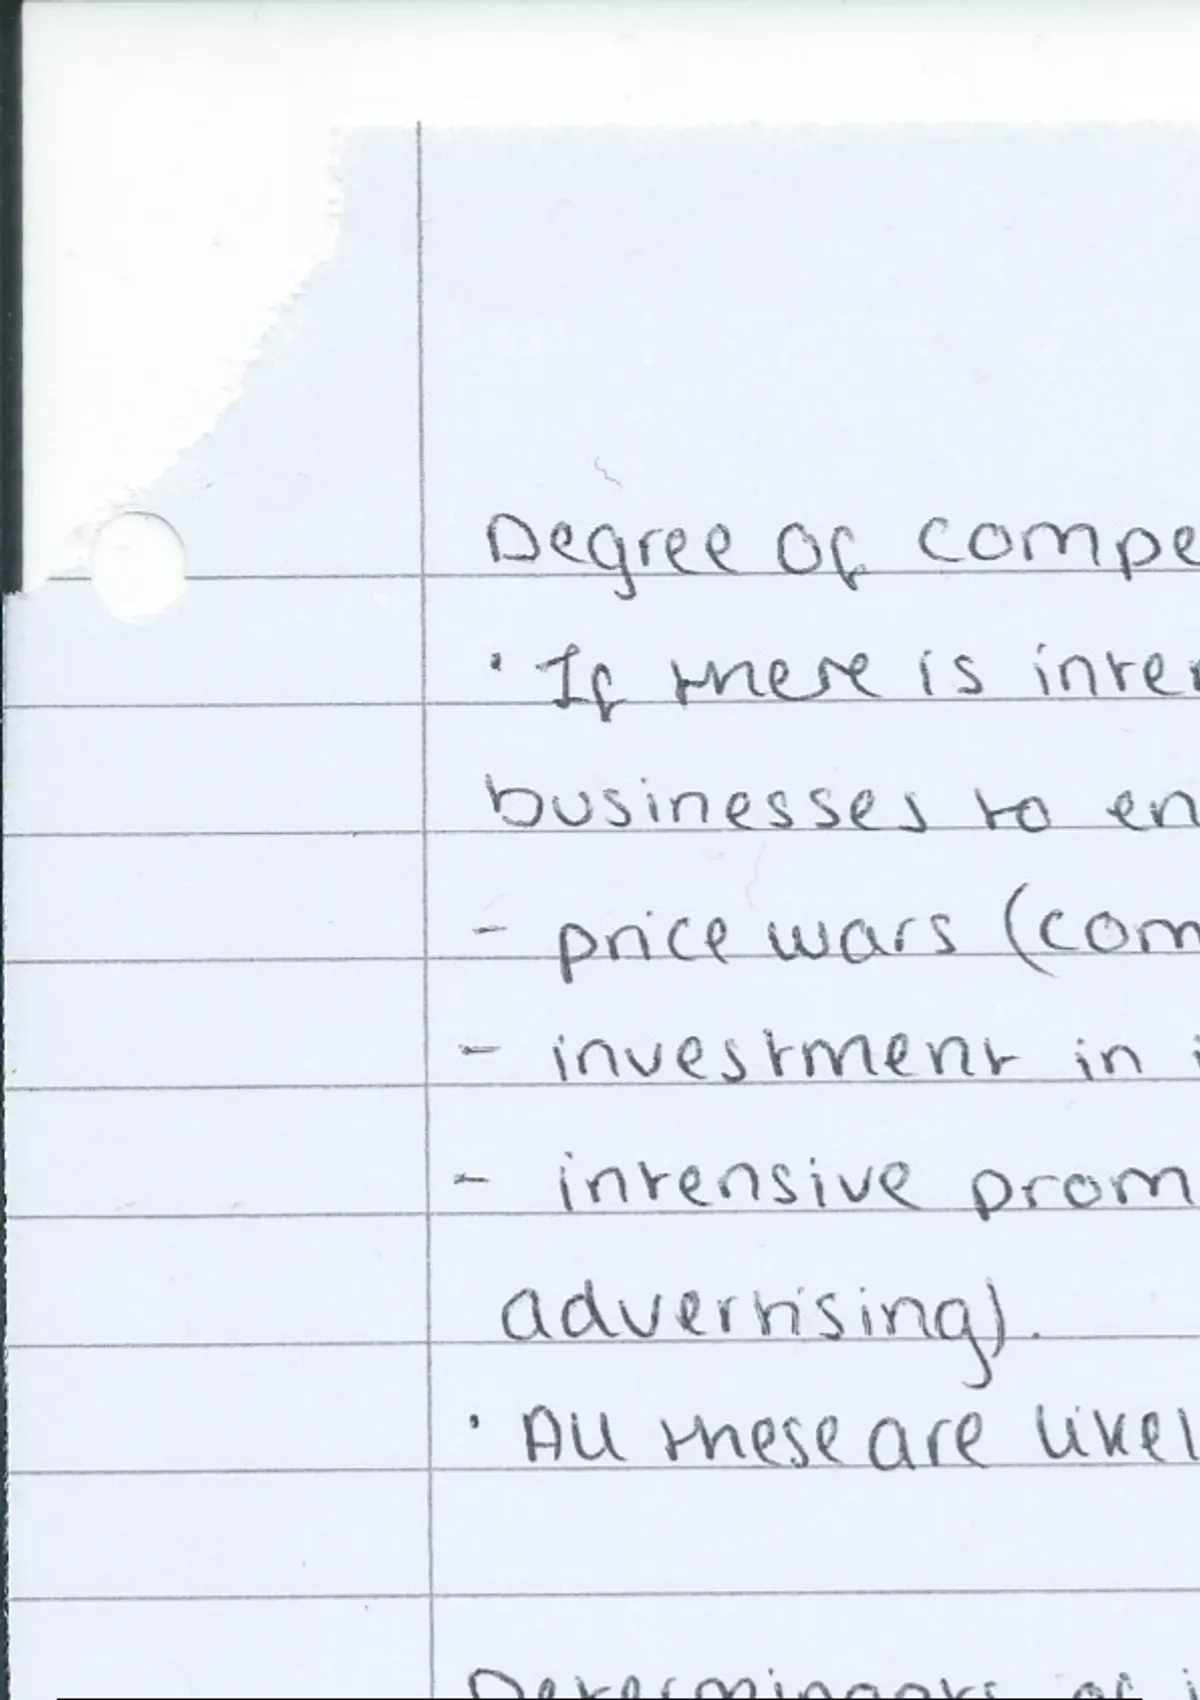 Degree of compe
· If there is inter
businesses to en
- price wars (com
- investment in i
- intensive prom
advertising).
· All these are likel
Determinants of i